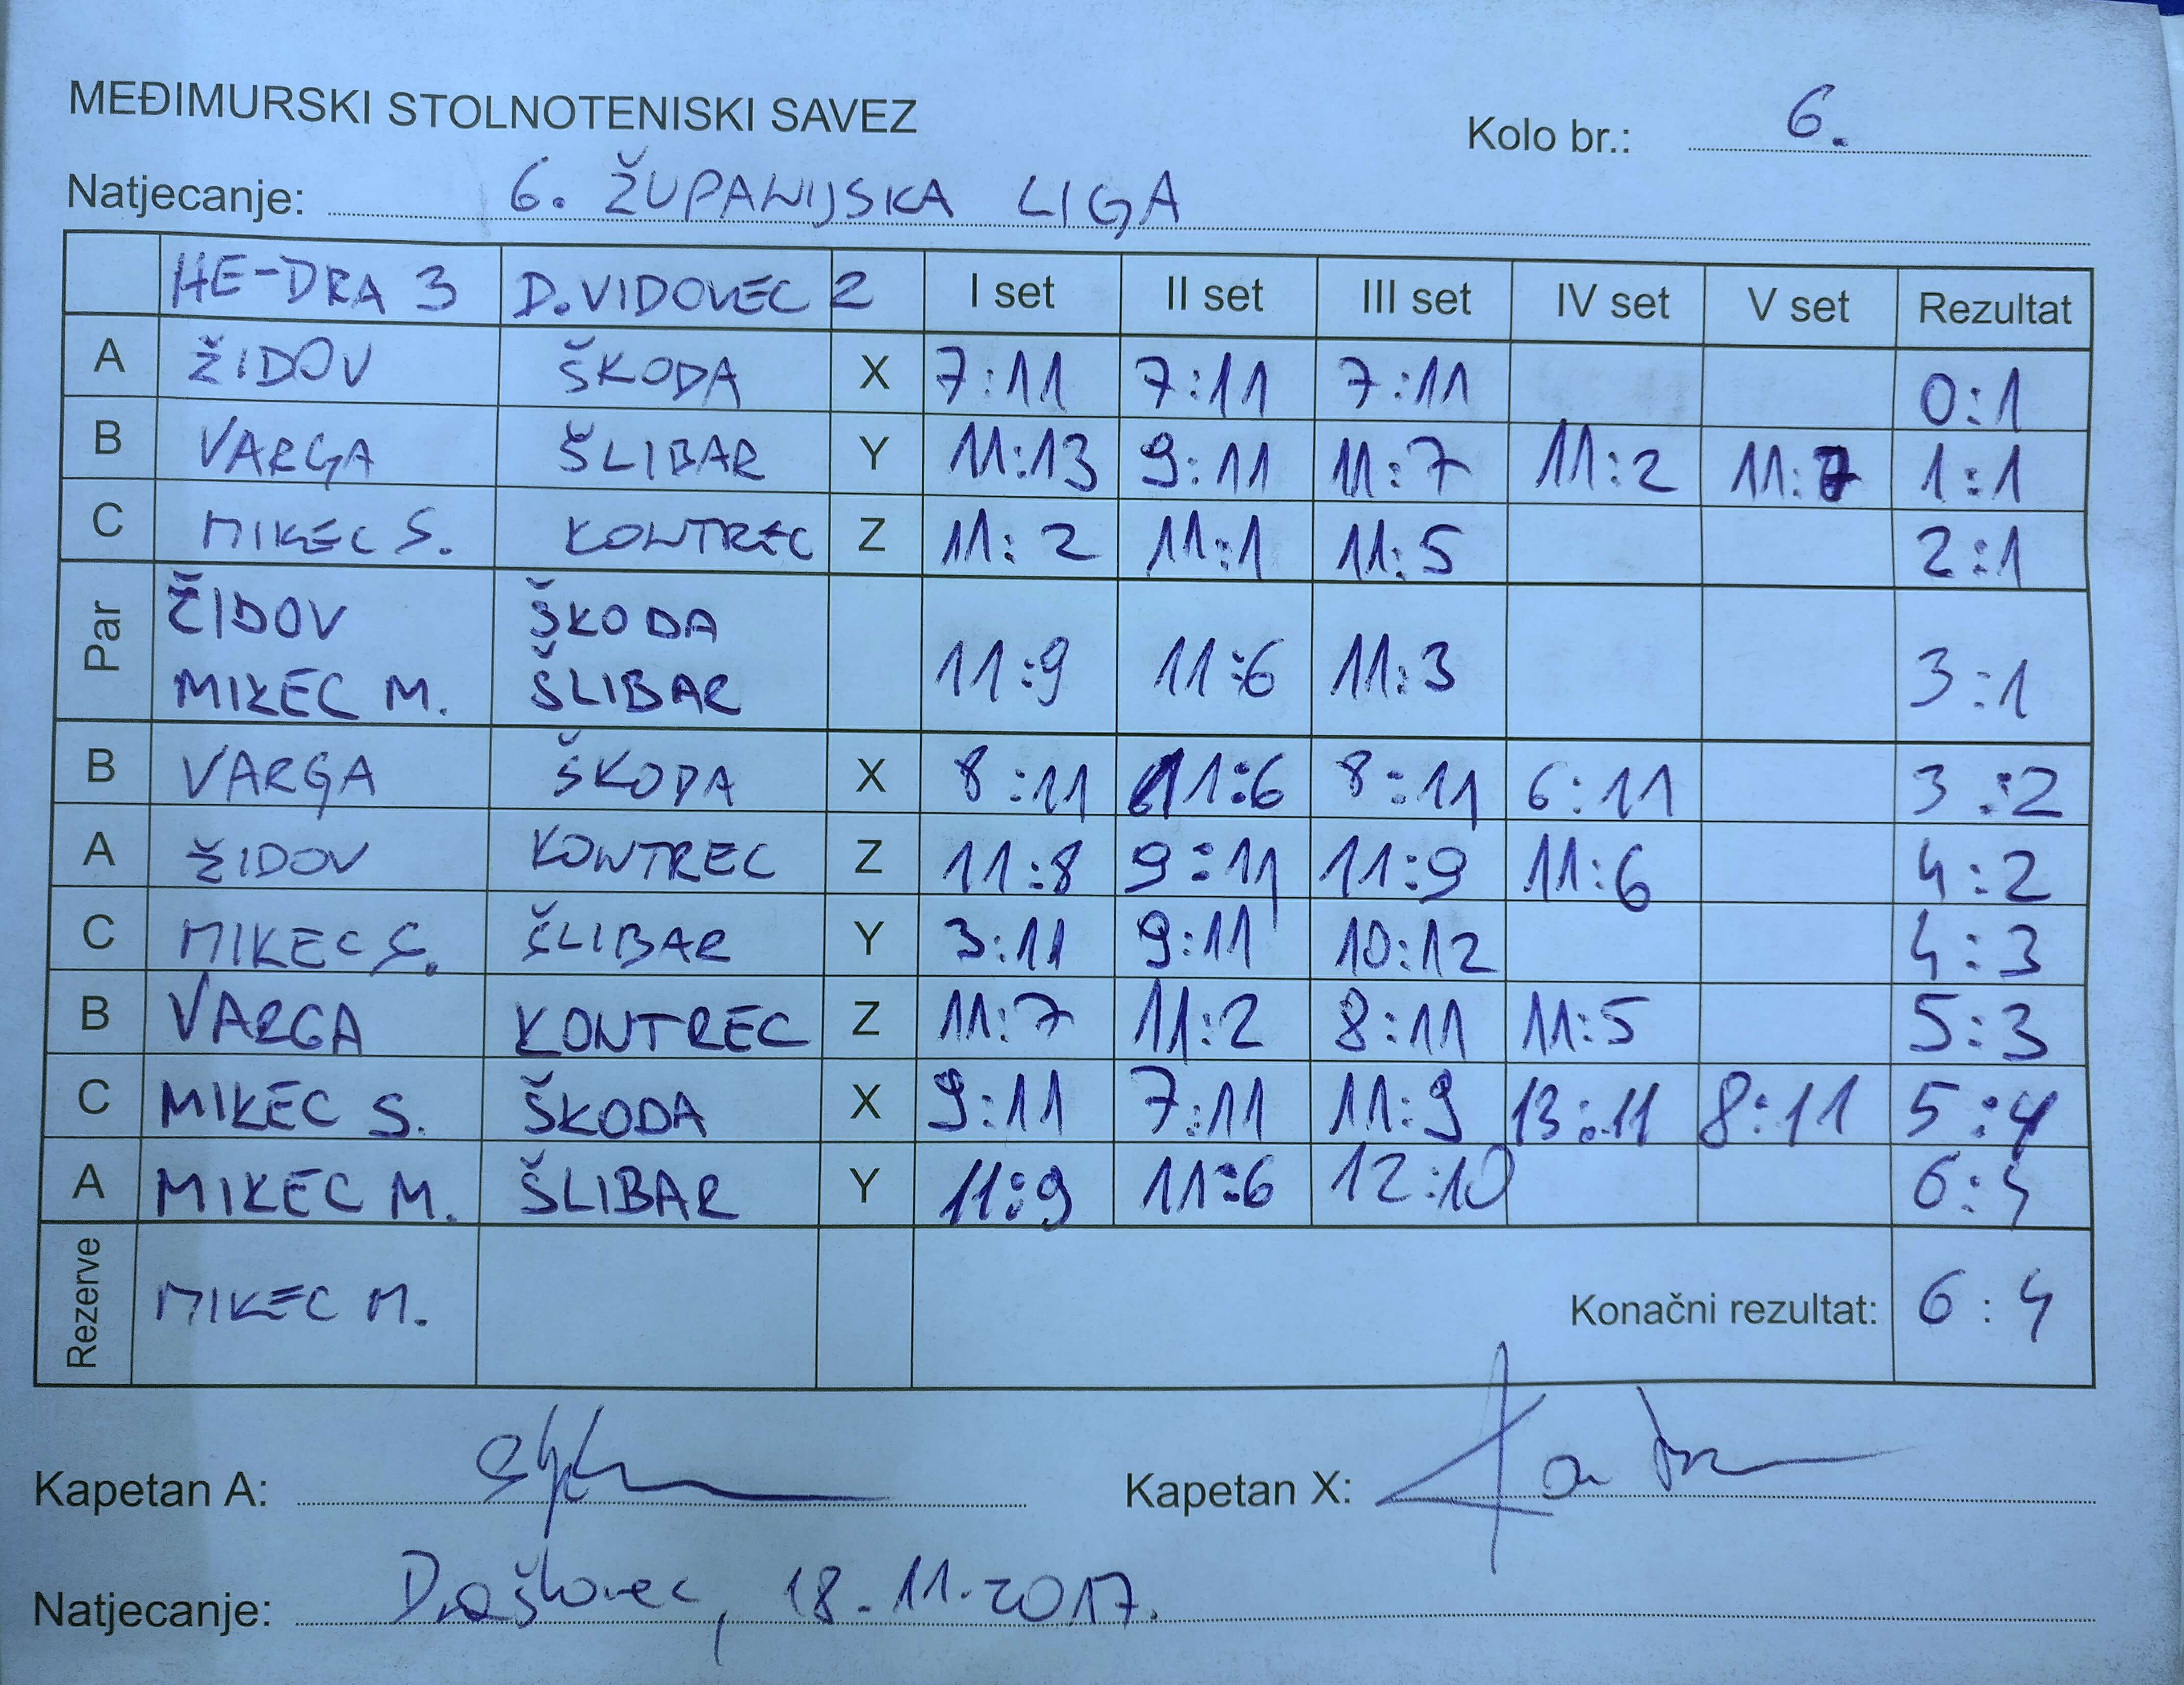 MEĐIMURSKI STOLNOTENISKI SAVEZ
Kolo br.: 6.
Natjecanje: 6. ŽUPANIJSKA LIGA
HE-DRA 3 D.VIDOVEC 2 I set II set III set IV set V set Rezultat
A ŽIDOV ŠKODA X 7:11 7:11 7:11 0:1
B VARGA ŠLIBAR Y 11:13 9:11 11:7 11:2 11:7 1:1
C MIKEC S. KONTREC Z 11:2 11:1 11:5 2:1
Par ŽIDOV ŠKODA
MIKEC M. ŠLIBAR 11:9 11:6 11:3 3:1
B VARGA ŠKODA X 8:11 11:6 8:11 6:11 3:2
A ŽIDOV KONTREC Z 11:8 9:11 11:9 11:6 4:2
C MIKEC S. ŠLIBAR Y 3:11 9:11 10:12 4:3
B VARGA KONTREC Z 11:7 11:2 8:11 11:5 5:3
C MIKEC S. ŠKODA X 9:11 7:11 11:9 13:11 8:11 5:4
A MIKEC M. ŠLIBAR Y 11:9 11:6 12:10 6:4
Rezerve MIKEC M. Konačni rezultat: 6:4
Kapetan A: Kapetan X:
Natjecanje: Draškovec, 18.11.2017.